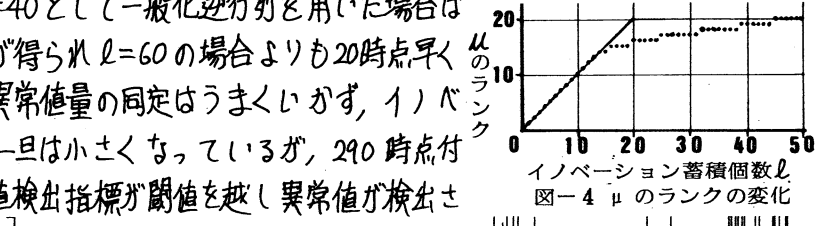 =40として一般化逆行列を用いた場合は
が得られl=60の場合よりも20時点早く
異常値量の同定はうまくいかず，イノベ
一旦は小さくなっているが，290時点付
値検出指標が閾値を越し異常値が検出さ
20
10
μのランク
0 10 20 30 40 50
イノベーション蓄積個数l
図－4 μのランクの変化